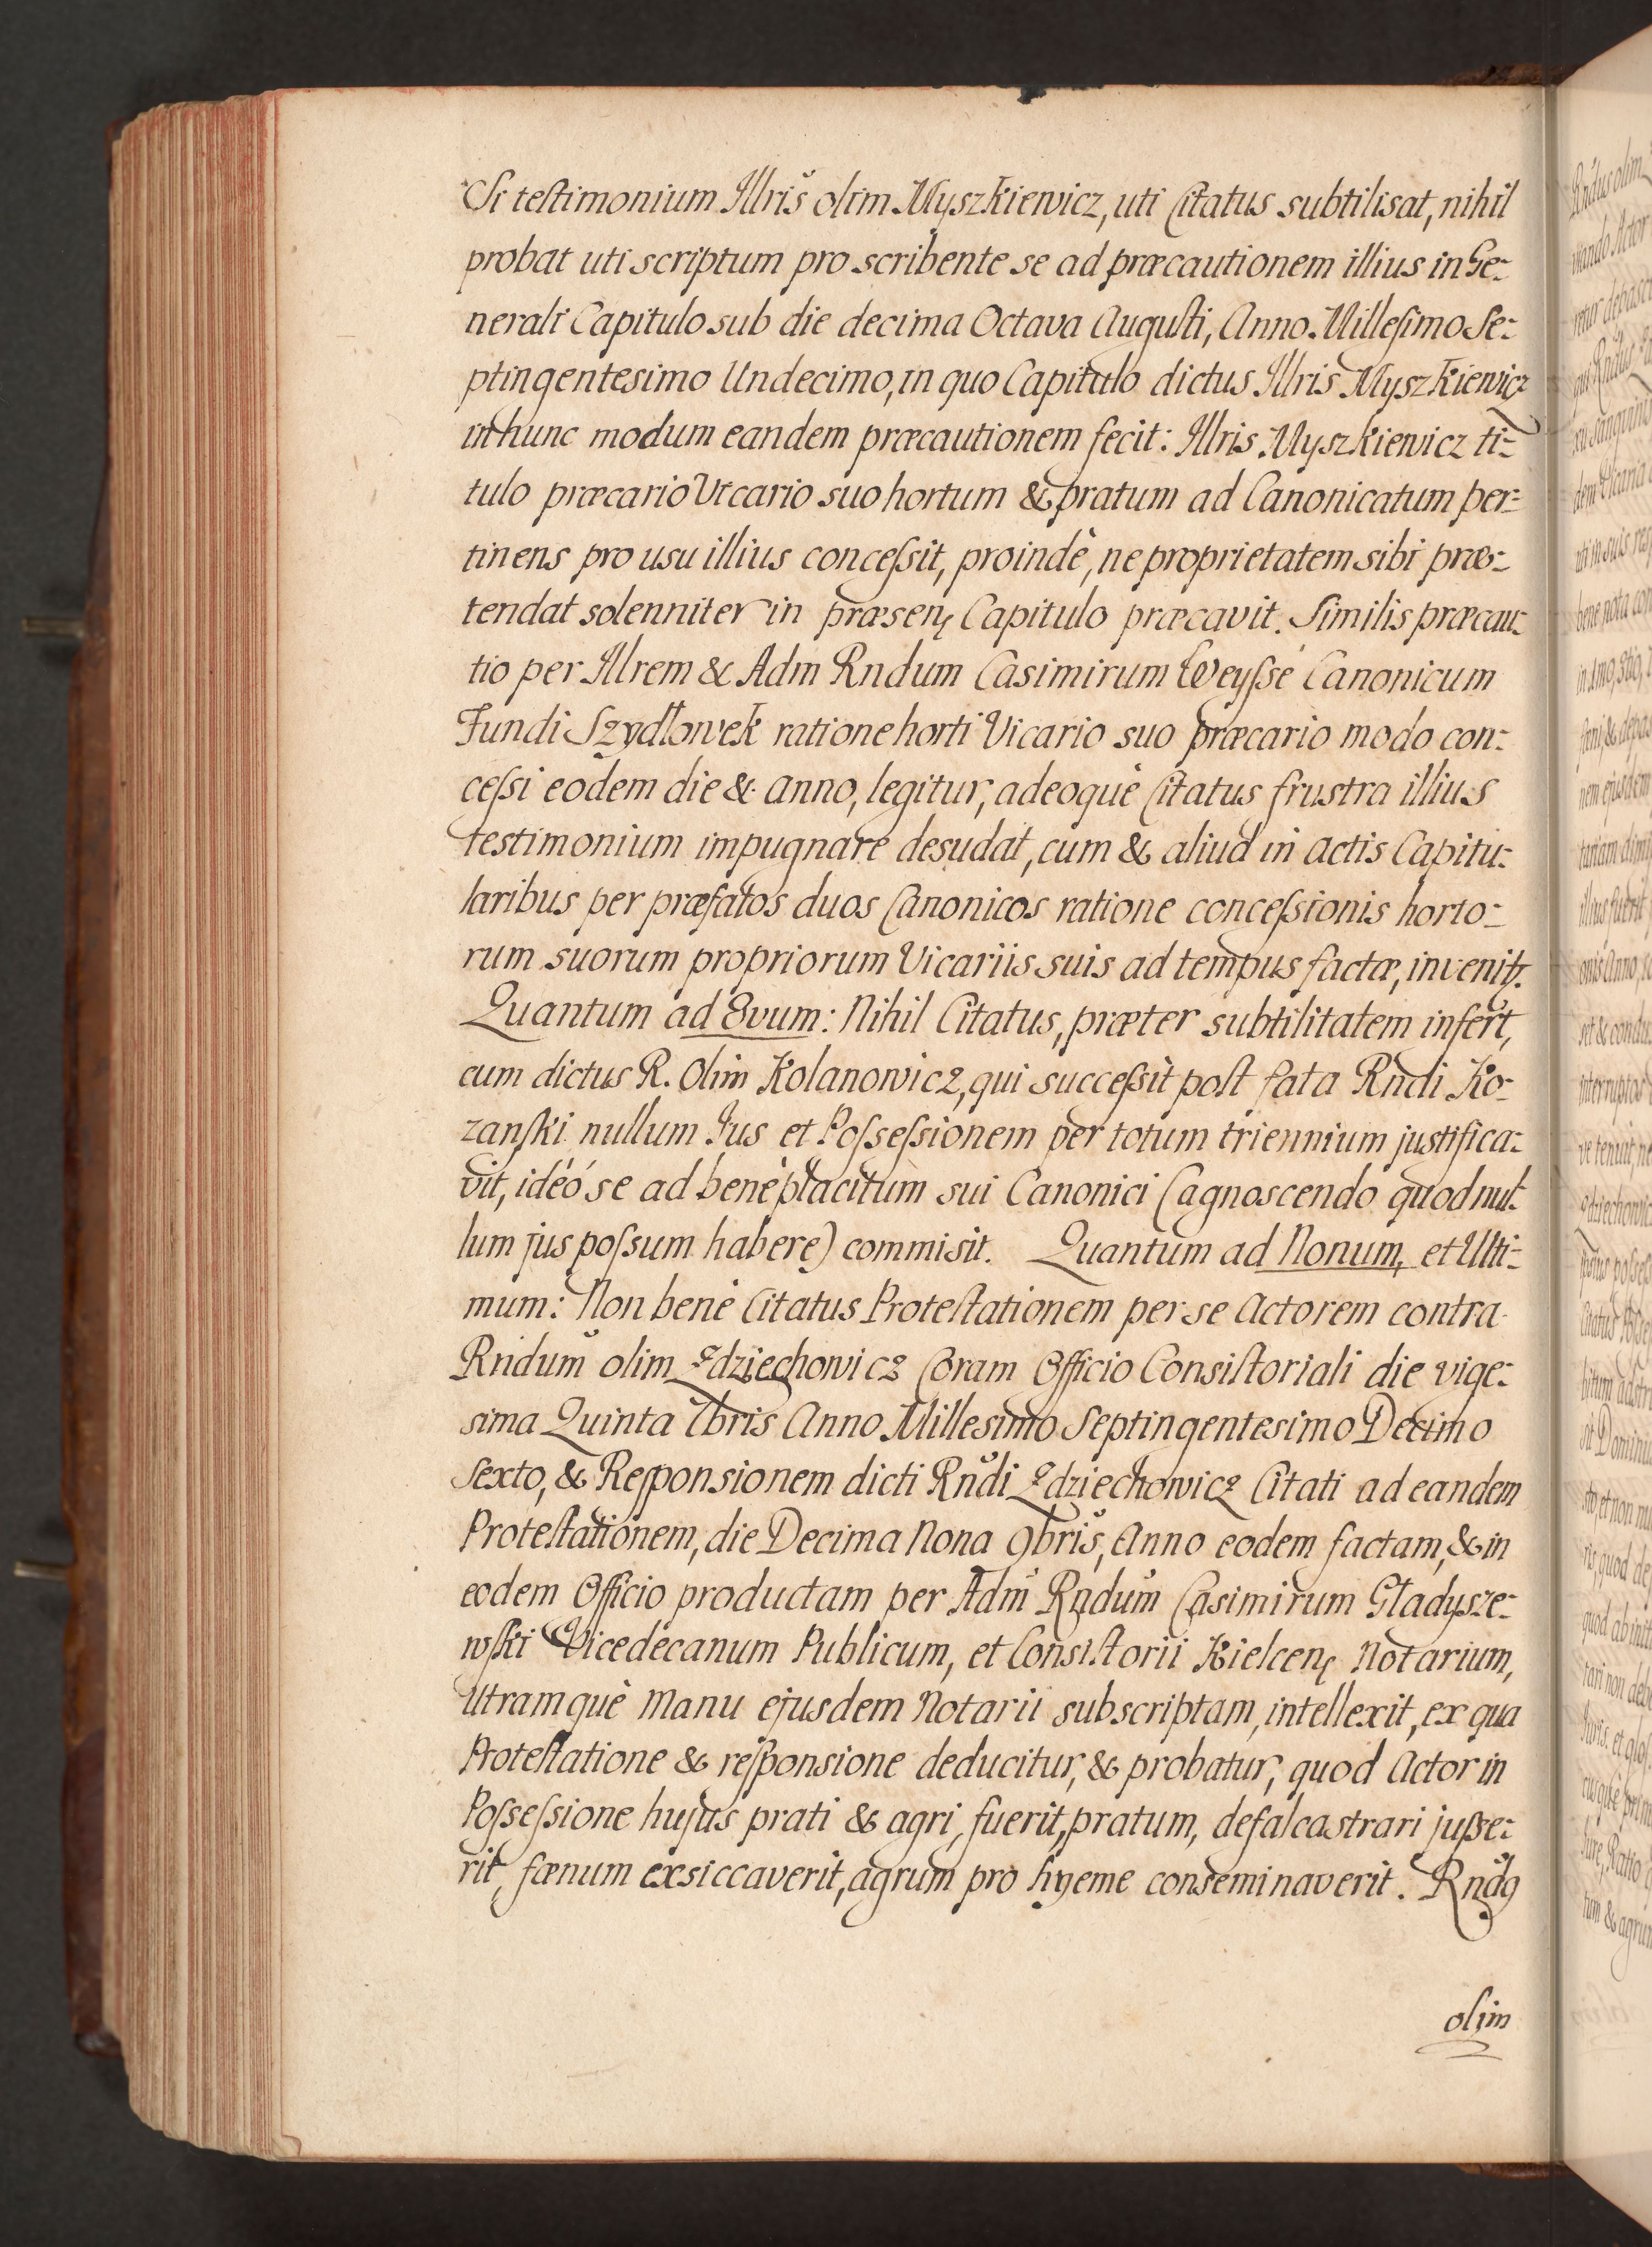 Si testimonium Illris olim Myszkiewicz, uti Citatus subtilisat, nihil
probat uti scriptum pro scribente se ad præcautionem illius in Ge-
nerali Capitulo sub die decima Octava Augusti, Anno Millesimo Se-
ptingentesimo Undecimo, in quo Capitulo dictus Illris Myszkiewicz
in hunc modum eandem præcautionem fecit: Illris Myszkiewicz ti-
tulo præcario Vicario suo hortum & pratum ad Canonicatum per-
tinens pro usu illius concessit, proindè, ne proprietatem sibi præ-
tendat solenniter in præsenę Capitulo præcavit. Similis præcau-
tio per Illrem & Adm Rndum Casimirum Weysse Canonicum
Fundi Szydłowek ratione horti Vicario suo præcario modo con-
cessi eodem die & anno, legitur, adeoquè Citatus frustra illius
testimonium impugnare desudat, cum & aliud in actis Capitu-
laribus per præfatos duos Canonicos ratione concessionis horto-
rum suorum propriorum Vicariis suis ad tempus factæ, invenitr.
Quantum ad 8vum: Nihil Citatus, præter subtilitatem infert,
cum dictus R. Olim Kolanowicz, qui successit post fata Rndi Ko-
zanski nullum Jus et Possessionem per totum triennium justifica-
vit, idèó se ad benèplacitum sui Canonici (agnoscendo quod nul-
lum jus possum habere) commisit. Quantum ad Nonum, et Ulti-
mum: Non benè Citatus Protestationem per se Actorem contra
Rndum olim Zdziechowicz Coram Officio Consistoriali die vige-
sima Quinta bris Anno Millesimo Septingentesimo Decimo
Sexto, & Responsionem dicti Rndi Zdziechowicz Citati ad eandem
Protestationem, die Decima Nona 9bris, Anno eodem factam, & in
eodem Officio productam per Adm Rndum Casimirum Gładysze-
wski Vicedecanum Publicum, et Consistorii Kielcenę Notarium,
Utramquè Manu ejusdem Notarii subscriptam, intellexit, ex qua
Protestatione & responsione deducitur, & probatur, quod Actor in
Possessione hujus prati & agri, fuerit, pratum, defalcastrari jusse-
rit, fænum exsiccaverit, agrum pro hyeme conseminaverit. Rnd9
olim